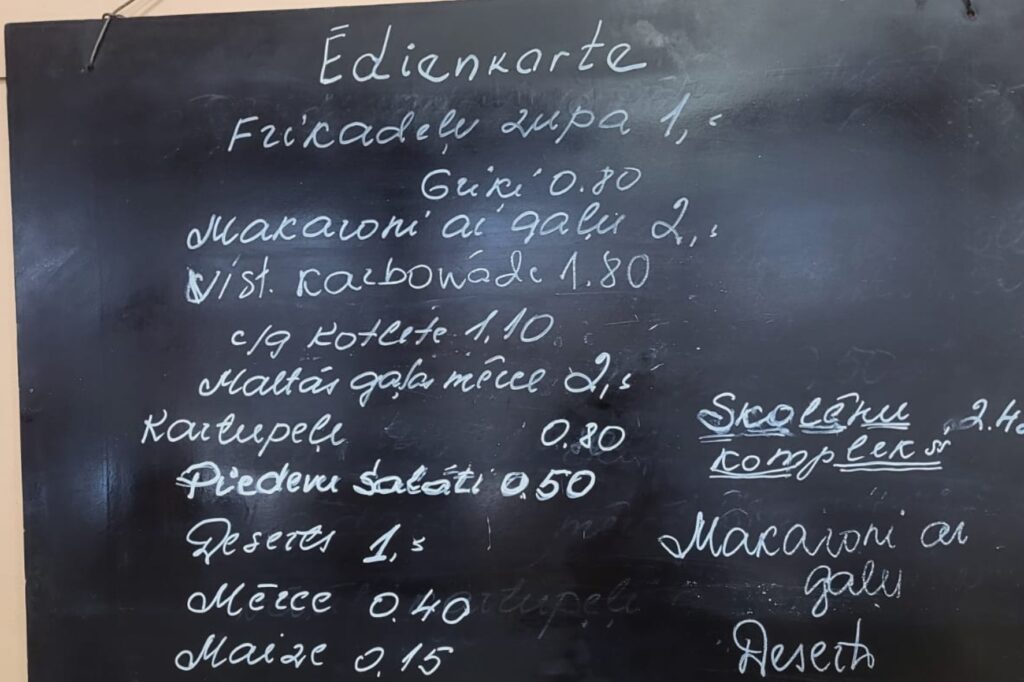 Ēdienkarte
Frikadeļu zupa 1,-
Griķi 0.80
Makaroni ar gaļu 2,-
Vist. karbonāde 1.80
c/g kotlete 1,10
Maltās gaļas mērce 2,-
Kartupeļi 0.80
Piedevu salāti 0.50
Deserts 1,-
Mērce 0.40
Maize 0,15
Skolēnu 2.4
komplekss
Makaroni ar
gaļu
Deserts